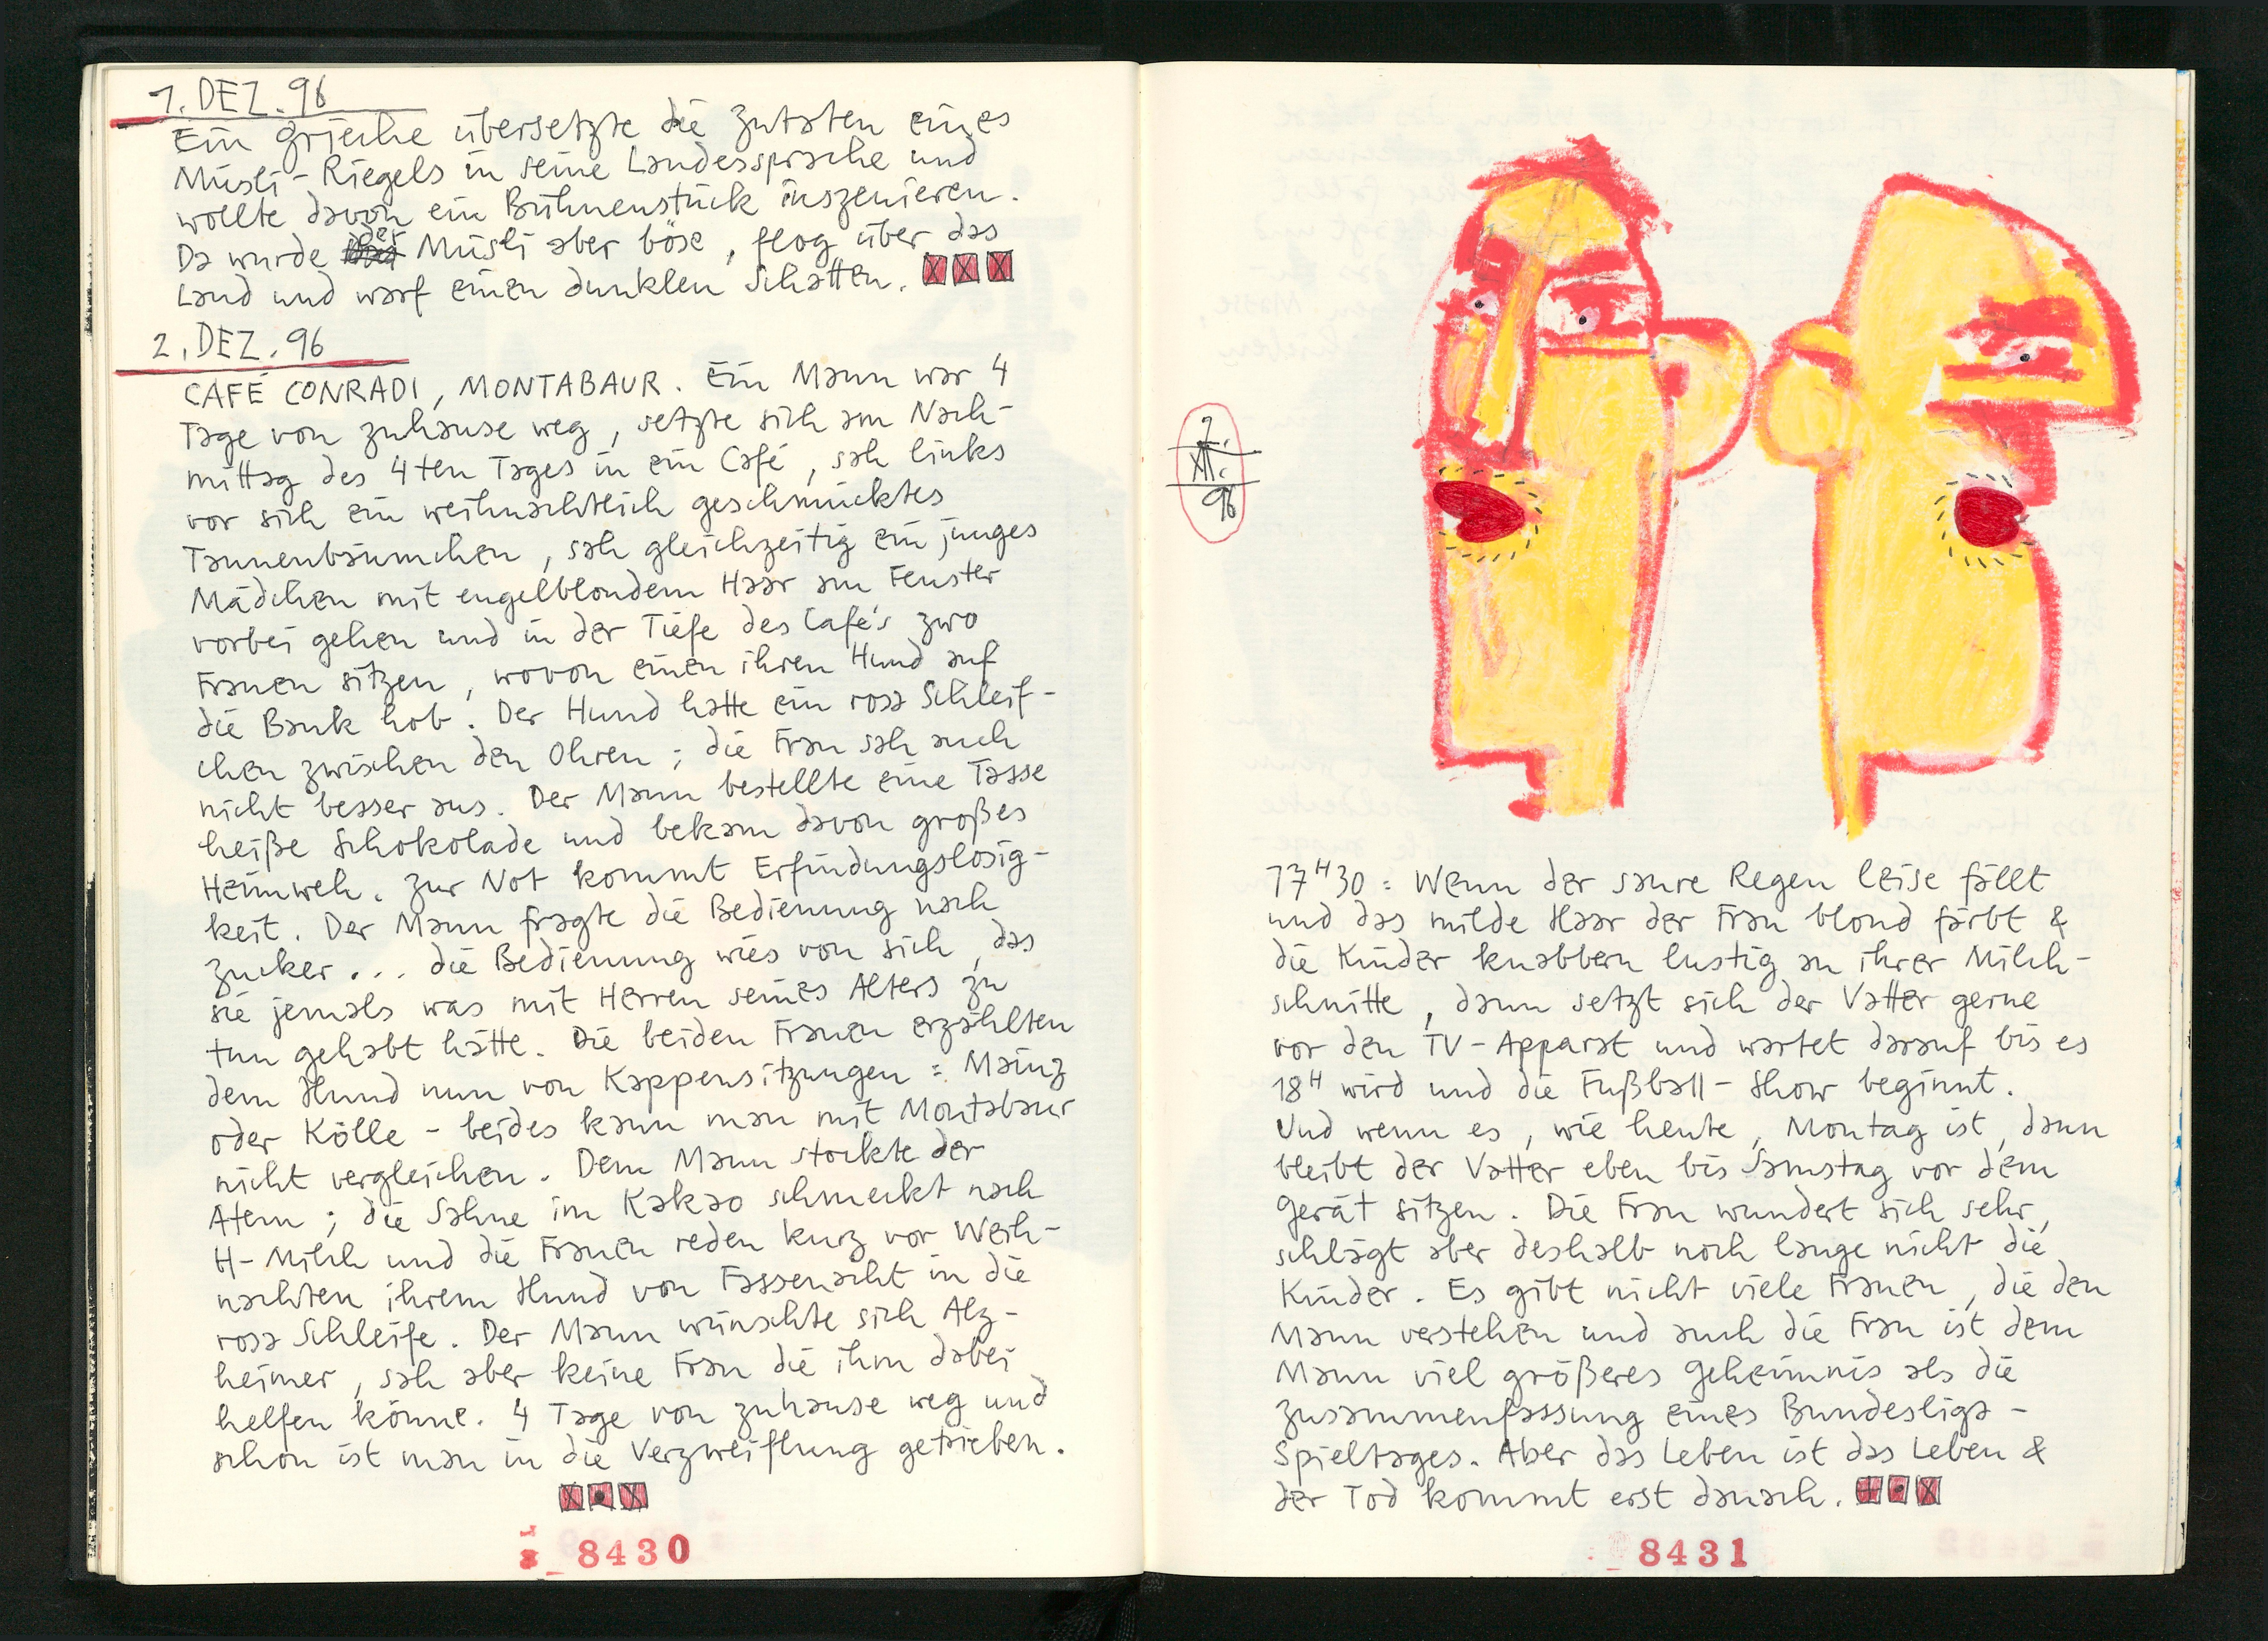 1. DEZ. 96
Ein Grieche übersetzte die Zutaten eines
Müsli-Riegels in seine Landessprache und
wollte davon ein Bühnenstück inszenieren.
Da wurde der Müsli aber böse, flog über das
Land und warf einen dunklen Schatten.
2. DEZ. 96
CAFÉ CONRADI, MONTABAUR. Ein Mann war 4
Tage von zuhause weg, setzte sich am Nach-
mittag des 4ten Tages in ein Café, sah links
vor sich ein weihnachtlich geschmücktes
Tannenbäumchen, sah gleichzeitig ein junges
Mädchen mit engelblondem Haar am Fenster
vorbei gehen und in der Tiefe des Café's zwo
Frauen sitzen, wovon einen ihren Hund auf
die Bank hob. Der Hund hatte ein rosa Schleif-
chen zwischen den Ohren; die Frau sah auch
nicht besser aus. Der Mann bestellte eine Tasse
heiße Schokolade und bekam davon großes
Heimweh. Zur Not kommt Erfindungslosig-
keit. Der Mann fragte die Bedienung nach
Zucker... die Bedienung wies von sich, das
sie jemals was mit Herren seines Alters zu
tun gehabt hätte. Die beiden Frauen erzählten
dem Hund nun von Kappensitzungen: Mainz
oder Kölle - beides kann man mit Montabaur
nicht vergleichen. Dem Mann stockte der
Atem; die Sahne im Kakao schmeckt nach
H-Milch und die Frauen reden kurz vor Weih-
nachten ihrem Hund von Fassenacht in die
rosa Schleife. Der Mann wünschte sich Alz-
heimer, sah aber keine Frau die ihm dabei
helfen könne. 4 Tage von zuhause weg und
schon ist man in die Verzweiflung getrieben.
8430
2.
XII.
96
17H30: Wenn der saure Regen leise fällt
und das milde Haar der Frau blond färbt &
die Kinder knabbern lustig an ihrer Milch-
schnitte, dann setzt sich der Vatter gerne
vor den TV-Apparat und wartet darauf bis es
18H wird und die Fußball-Show beginnt.
Und wenn es, wie heute, Montag ist, dann
bleibt der Vatter eben bis Samstag vor dem
Gerät sitzen. Die Frau wundert sich sehr,
schlägt aber deshalb noch lange nicht die
Kinder. Es gibt nicht viele Frauen, die den
Mann verstehen und auch die Frau ist dem
Mann viel größeres Geheimnis als die
Zusammenfassung eines Bundesliga-
Spieltages. Aber das Leben ist das Leben &
der Tod kommt erst danach.
8431